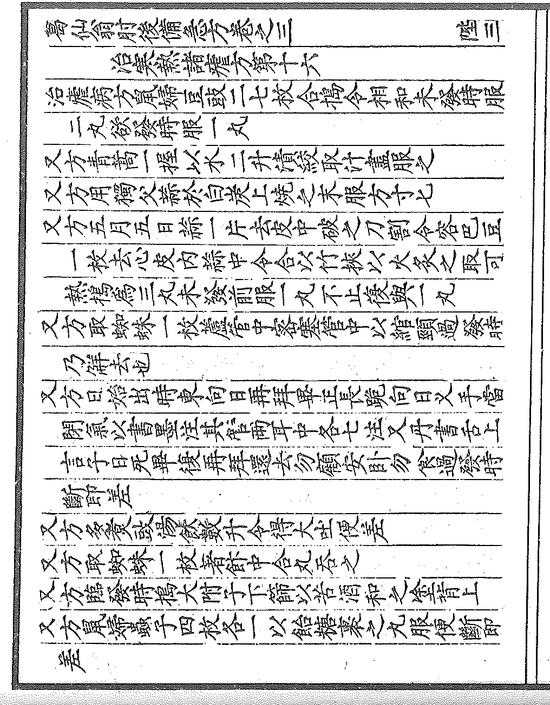 葛仙翁肘後備急方卷之三 陸三
治寒熱諸瘧方第十六
治瘧病方鼠婦豆豉二七枚合搗令相和未發時服
二丸欲發時服一丸
又方青蒿一握以水二升漬絞取汁盡服之
又方用獨父蒜於白炭上燒之末服方寸匕
又方五月五日蒜一片去皮中破之刀割令容巴豆
一枚去心皮內蒜中令合以竹挾以火炙之取可
熱搗為三丸未發前服一丸不止復與一丸
又方取蜘蛛一枚蘆管中密塞管中以綰頸過發時
乃解去也
又方日始出時東向日再拜畢正長跪向日叉手當
閉氣以書墨注其管兩耳中各七注又丹書舌上
言子日死畢復再拜還去勿顧安臥勿食過發時
斷即差
又方多煮豉湯飲數升令得大吐便差
又方取蜘蛛一枚著飯中合丸吞之
又方臨發時搗大附子下篩以苦酒和之塗背上
又方鼠婦蟲子四枚各一以飴糖裹之丸服便斷即
差